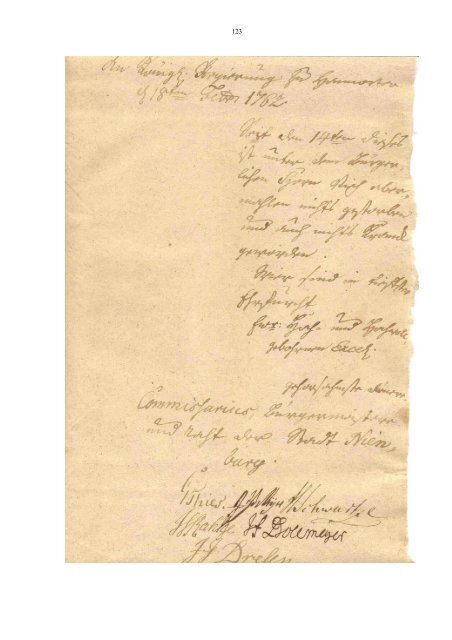 123
An Königl. Regierung zu Hannover
d 18ten Febr 1762
Seit dem 14ten dieses
ist unter dem Bürger
lichen Horn Vieh aber
mahlen nichts gestorben
und auch nichts Krank
geworden.
Wier sind in tiefster
Ehrfurcht
Ew: Hoch- und Hochwoll
gebohrnen Excell:
gehorsahmste diener
Commissarius Bürgermeistere
und Raht der Stadt Nien
burg.
Schwartze
Dolemeyer